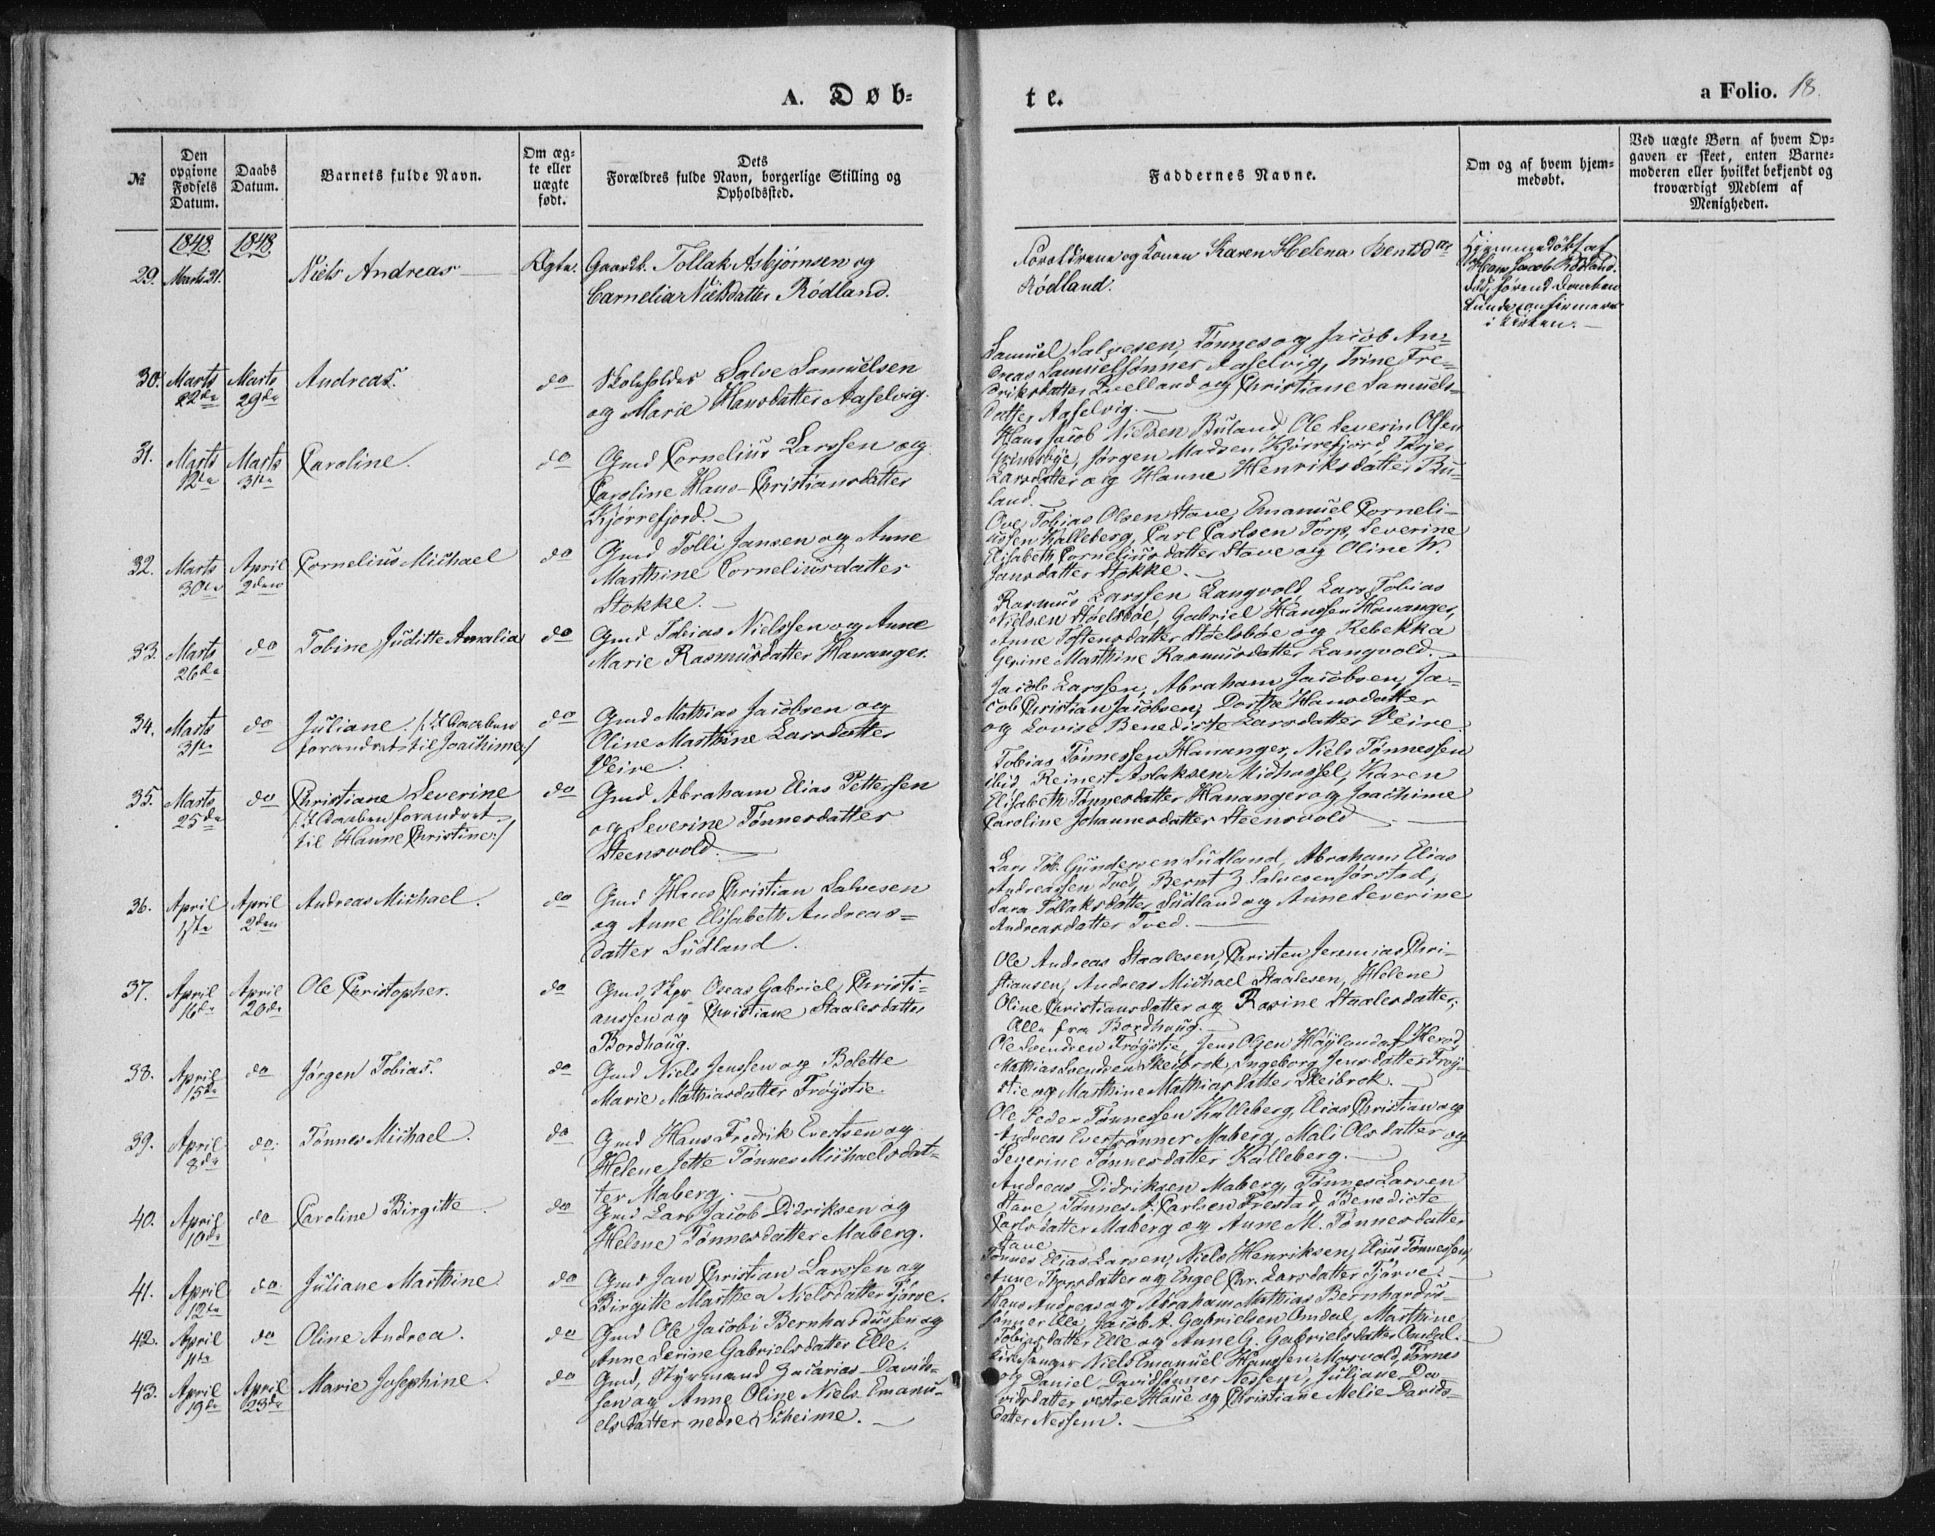 A. Døb-
te.
a Folio. 18.
№
Den opgivne Fødsels Datum.
Daabs Datum.
Barnets fulde Navn.
Om ægte eller uægte født.
Dets Forældres fulde Navn, borgerlige Stilling og Opholdssted.
Faddernes Navne.
Om og af hvem hjemmedøbt.
Ved uægte Børn af hvem Opgaven er skeet, enten Barnemoderen eller hvilket bekjendt og troværdigt Medlem af Menigheden.
1848. 1848.
29. Marts 21. Niels Andreas Ægte. Gaardb. Tollak Asbjørnsen og
Carnelia Nielsdatter Rødland.
Forældrene og Konen Karen Helena Bentsdtr
Rødland.
Hjemmedøbt af
Hans Jacob Rødland.
død, førend Daaben
kunde confirmeres
i Kirken.
30. Marts 22de Marts 29de Andreas. do Skoleholder Salve Samuelsen
og Marie Hansdatter Aaselvig.
Samuel Salvesen, Tønnes og Jacob An-
dreas Samuelsønner Aaselvig, Trine Fre-
driksdatter Qvelland og Christiane Samuels-
datter Aaselvig.
31. Marts 12te Marts 31te Caroline. do Gmd Cornelius Larssen og
Caroline Hans-Christiansdatter
Kjørrefjord.
Hans Jacob Nielsen Buland, Ole Severin Olsen
Grimsbye, Jørgen Madsen Kjørrefjord, Terjer
Larsdatter og Hanne Henriksdatter Bu-
land.
32. Marts 30te April 2den Cornelius Michael do Gmd Tolli Jansen og Anne
Marthine Corneliusdatter
Stokke.
Ove Tobias Olsen Stave, Emanuel Corneli-
ussen Kalleberg, Carl Carlsen Torp, Severine
Elisabeth Corneliusdatter Stave og Oline W.
Jansdatter Stokke.
33. Marts 26de do Tobine Juditte Amalia do Gmd Tobias Nielssen og Anne
Marie Rasmusdatter Hananger.
Rasmus Larssen Langvold, Lars Tobias
Nielsen Støelsbøe, Gabriel Hanssen Hananger,
Anne Tostensdatter Støelsbøe og Rebekka
Gerine Marthine Rasmusdatter Langvold.
34. Marts 31te do Juliane /: I Daaben
forandret til Joachime :/ do Gmd Mathias Jacobsen og
Oline Marthine Larsdatter
Veire.
Jacob Larssen, Abraham Jacobsen, Ja-
cob Christian Jacobsen, Dorthe Hansdatter
og Lovise Benedicte Larsdatter Veire.
35. Marts 25de do Christiane Severine
/: I Daaben forandret
til Hanne Christine :/ do Gmd Abraham Elias Pettersen
og Severine Tønnesdatter
Steensvold.
Tobias Tønnessen Hananger, Niels Tønnessen
ibid, Reinert Aslaksen Midhassel, Karen
Elisabeth Tønnesdatter Hananger og Joachime
Caroline Johannesdatter Steensvold
36. April 1ste April 2den Andreas Michael. do Gmd Hans Christian Salvesen
og Anne Elisabeth Andreas-
datter Sudland.
Lars Tob. Gundersen Sudland, Abraham Elias
Andreassen Tved, Bernt Z. Salvesen Jørstad,
Sara Tollaksdatter Sudland og Anne Severine
Andreasdatter Tved.
37. April 16de April 20de Ole Christopher. do Gmd, Skpr Oseas Gabriel Christi-
anssen og Christiane Staalesdatter
Bordhaug.
Ole Andreas Staalesen, Christen Jeremias Chri-
stiansen, Andreas Michael Staalesen, Helene
Oline Christiansdatter og Rasine Staalesdatter,
Alle fra Bordhaug.
38. April 15de do Jørgen Tobias. do Gmd Niels Jenssen og Bolette
Marie Mathiasdatter Trøystie.
Ole Svendsen Trøystie, Jens Olsen Høyland af Herød
Mathias Svendsen Skeibrok, Ingeborg Jensdatter Trøy-
stie og Marthine Mathiasdatter Skeibrok.
39. April 8de do. Tønnes Michael. do Gmd Hans Fredrik Evertsen og
Helene Jette Tønnes Michaelsdat-
ter Maberg.
Ole Peder Tønnessen Kalleberg, Elias Christian og
Andreas Evertsønner Maberg, Mali Olsdatter og
Severine Tønnesdatter Kalleberg.
40. April 10de do Caroline Birgitte. do Gmd Lars Jacob Didriksen og
Helene Tønnesdatter Maberg.
Andreas Didriksen Maberg, Tønnes Larsen
Stave, Tønnes A. Carlsen Frestad, Benedicte
Carlsdatter Maberg og Anne M. Tønnesdatter
Stave
41. April 12te do. Juliane Marthine. do Gmd Jan Christian Larssen og
Birgitte Marthea Nielsdatter Tjørve.
Tønnes Elias Larsen, Niels Henriksen, Elias Tønnessen,
Anne Thorsdatter og Engel Chr. Larsdatter Tjørve.
42. April 11te do Oline Andrea. do Gmd Ole Jacobi Bernhardussen og
Anne Serine Gabrielsdatter Elle.
Hans Andreas og Abraham Mathias Bernhardus-
sønner Elle, Jacob A. Gabrielsen Omdal, Marthine
Tobiasdatter Elle og Anne G. Gabrielsdatter Omdal.
43. April 19de April 23de Marie Josephine. do Gmd, Styrmand Zacarias Davids-
sen og Anne Oline Niels Emanu-
elsdatter nedre Skeime.
Kirkesanger Niels Emanuel Hanssen Marvold, Tønnes
og Daniel Davidsønner Nessem, Juliane Da-
vidsdatter vestre Haue og Christiane Melie Davids-
datter Nessem.